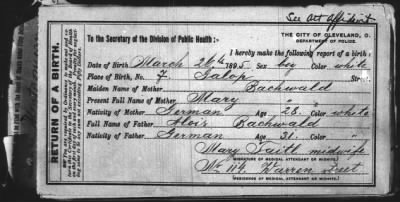 See Art Affidavit
THE CITY OF CLEVELAND, O.
DEPARTMENT OF POLICE.
To the Secretary of the Division of Public Health:
I hereby make the following report of a birth:
Date of Birth March 26th 1895 Sex boy Color white
Place of Birth, No. 7. Galop Str
Maiden Name of Mother Bachwald
Present Full Name of Mother Mary " "
Nativity of Mother German Age 28. Color white
Full Name of Father Alois Bachwald
Nativity of Father German Age 31. Color "
Mary Faitl midwife
(SIGNATURE OF MEDICAL ATTENDANT OR MIDWIFE.)
No 114. Warren street
(RESIDENCE OF MEDICAL ATTENDANT OR MIDWIFE.)
RETURN OF A BIRTH.